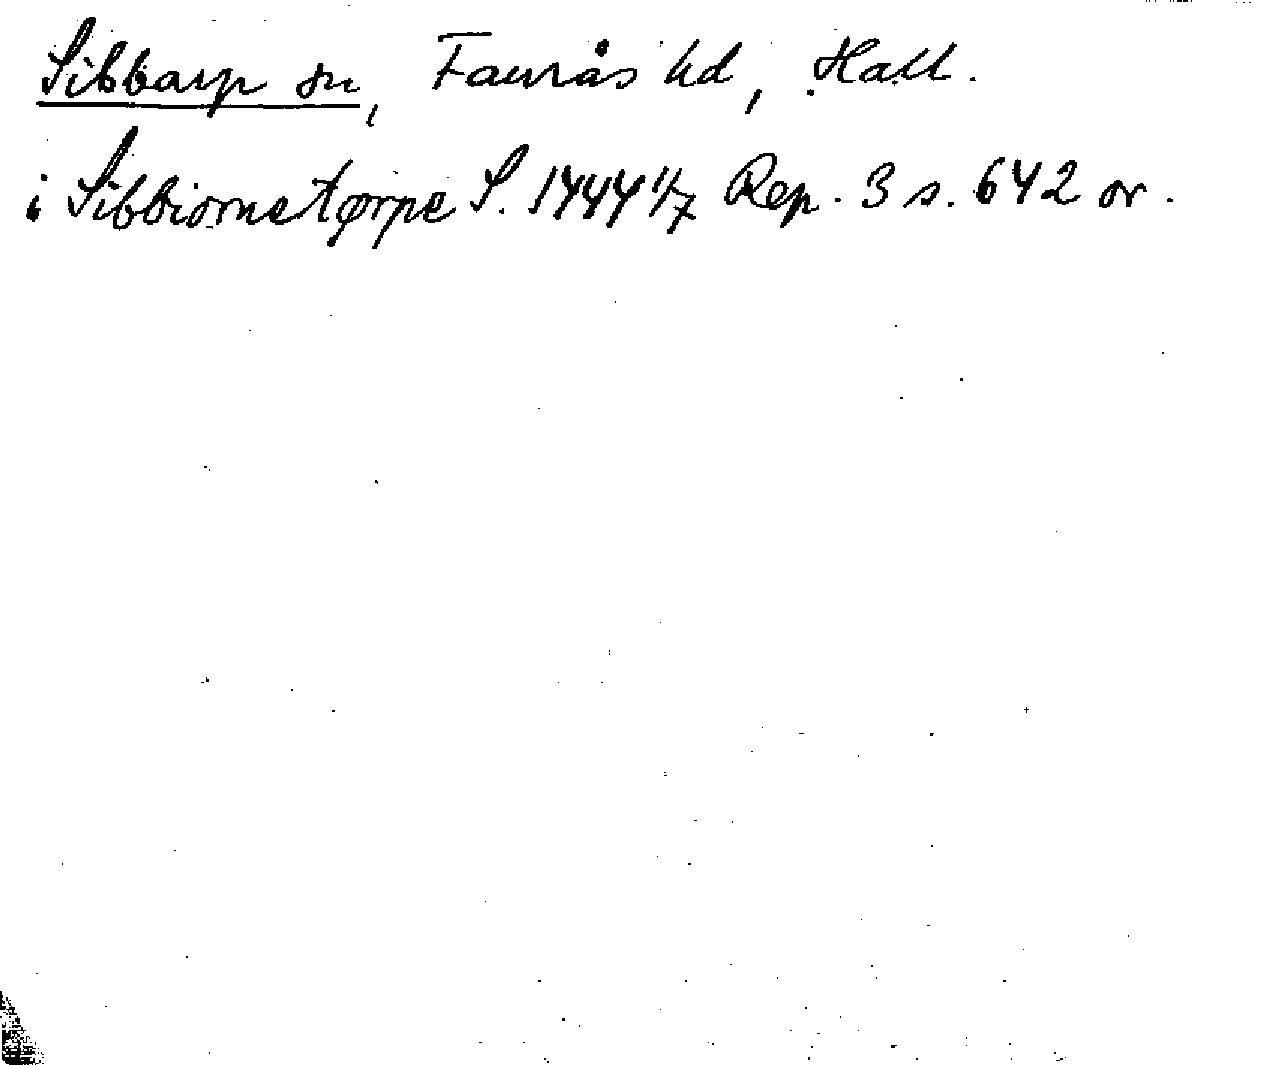 Sibbarp sn, Faurås hd, Hall.
i Sibbiornetørpe S. 1444 1/7 Rep. 3 s. 642 or.